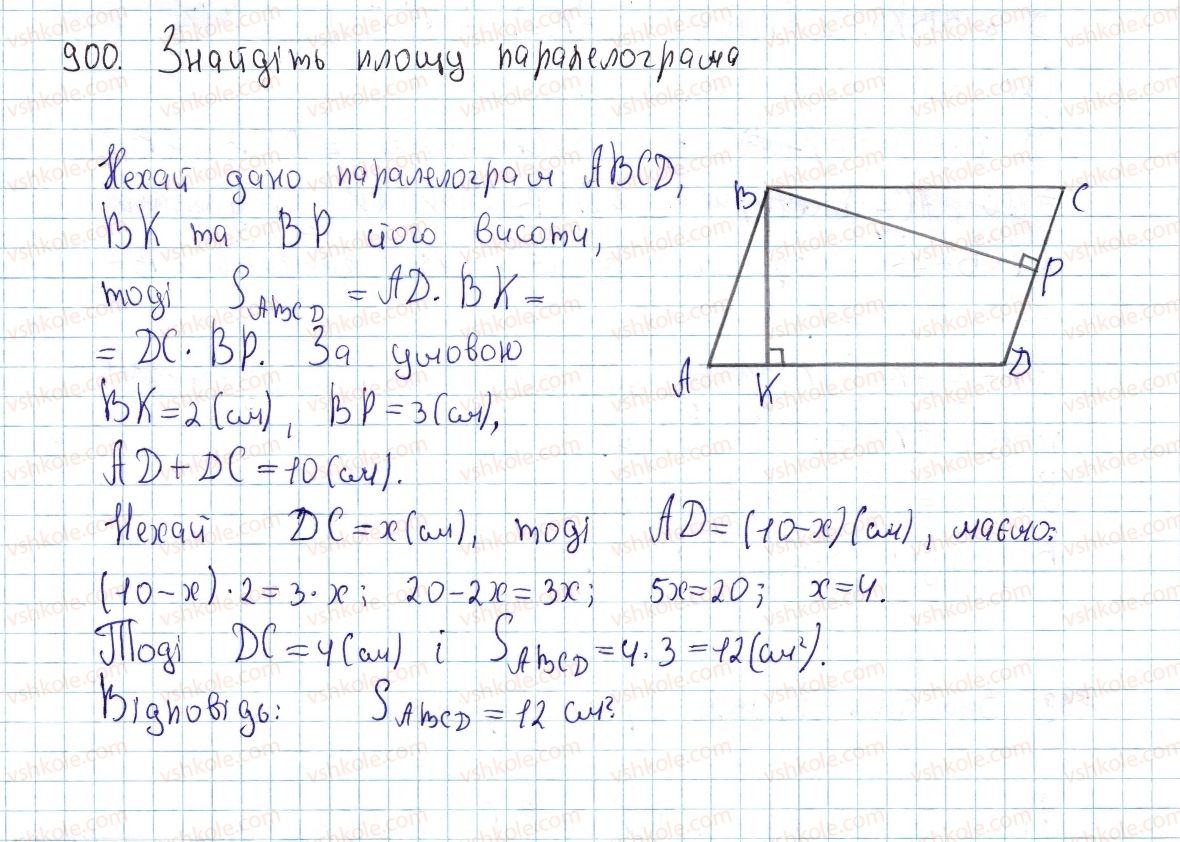 900. Знайдіть площу паралелограма
Нехай дано паралелограм ABCD,
BK та BP його висоти,
тоді S_ABCD = AD · BK =
= DC · BP. За умовою
BK = 2 (см), BP = 3 (см),
AD + DC = 10 (см).
Нехай DC = x (см), тоді AD = (10 - x) (см), маємо:
(10 - x) · 2 = 3 · x; 20 - 2x = 3x; 5x = 20; x = 4.
Тоді DC = 4 (см) і S_ABCD = 4 · 3 = 12 (см²).
Відповідь: S_ABCD = 12 см².
B
C
P
A
K
D
vshkole.com